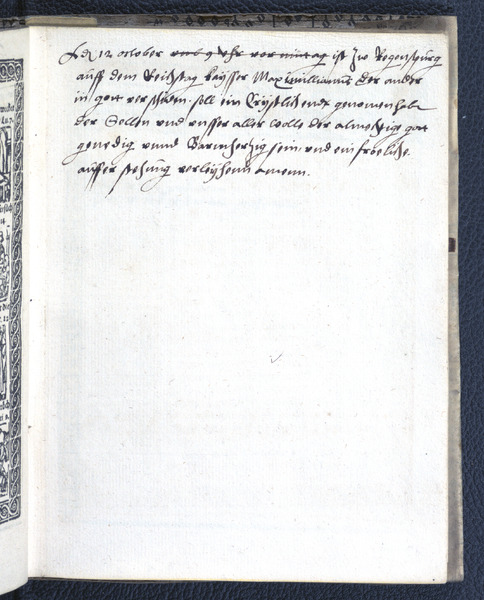 Ad 12 october vmb 9 Vhr vor mittag ist Zw Regenspurg
auff dem Reichstag kaysser Maximillianus der ander
in gott verschiden. soll ein Cristlich endt genomen habn
der Sellen vnd vnsser aller wolle der almechtige gott
genedig vnnd Barmhertzig sein vnd ein froeliche
aufferstehung verleyhenn amenn.